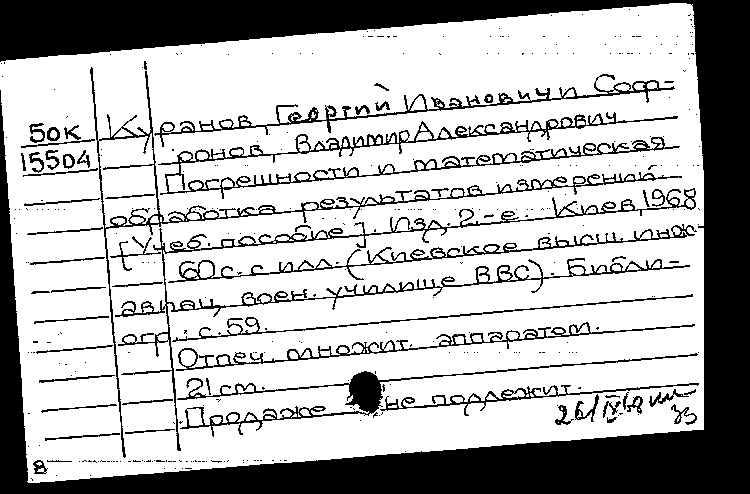 50к
15504
Куранов, Георгий Иванович и Соф-
ронов, Владимир Александрович.
Погрешности и математическая
обработка результатов измерений.
[Учеб. пособие]. Изд. 2-е. Киев, 1968
60с. с илл. (Киевское высш. инж.-
авиац. воен. училище ВВС). Библи-
огр.: с. 59.
Отпеч. множит. аппаратом.
21см.
Продаже не подлежит.
26/IX68
33
8